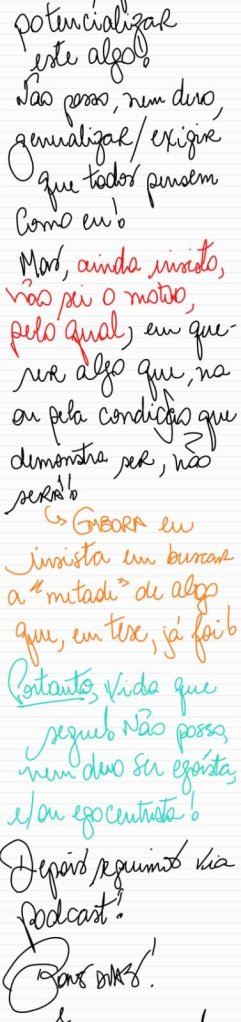 potencializar
este algo!
Não posso, nem devo,
generalizar/exigir
que todos pensem
como eu!
Mas, ainda insisto,
não sei o motivo,
pelo qual, em que-
rer algo que, na
ou pela condição que
demonstra ser, não
será!
↳ EMBORA eu
insista em buscar
a "metade" de algo
que, em tese, já foi!
Portanto, Vida que
segue! Não posso,
nem devo ser egoísta,
e/ou egocentrista!
Depois seguimos via
podcast!
Bons DIAS!